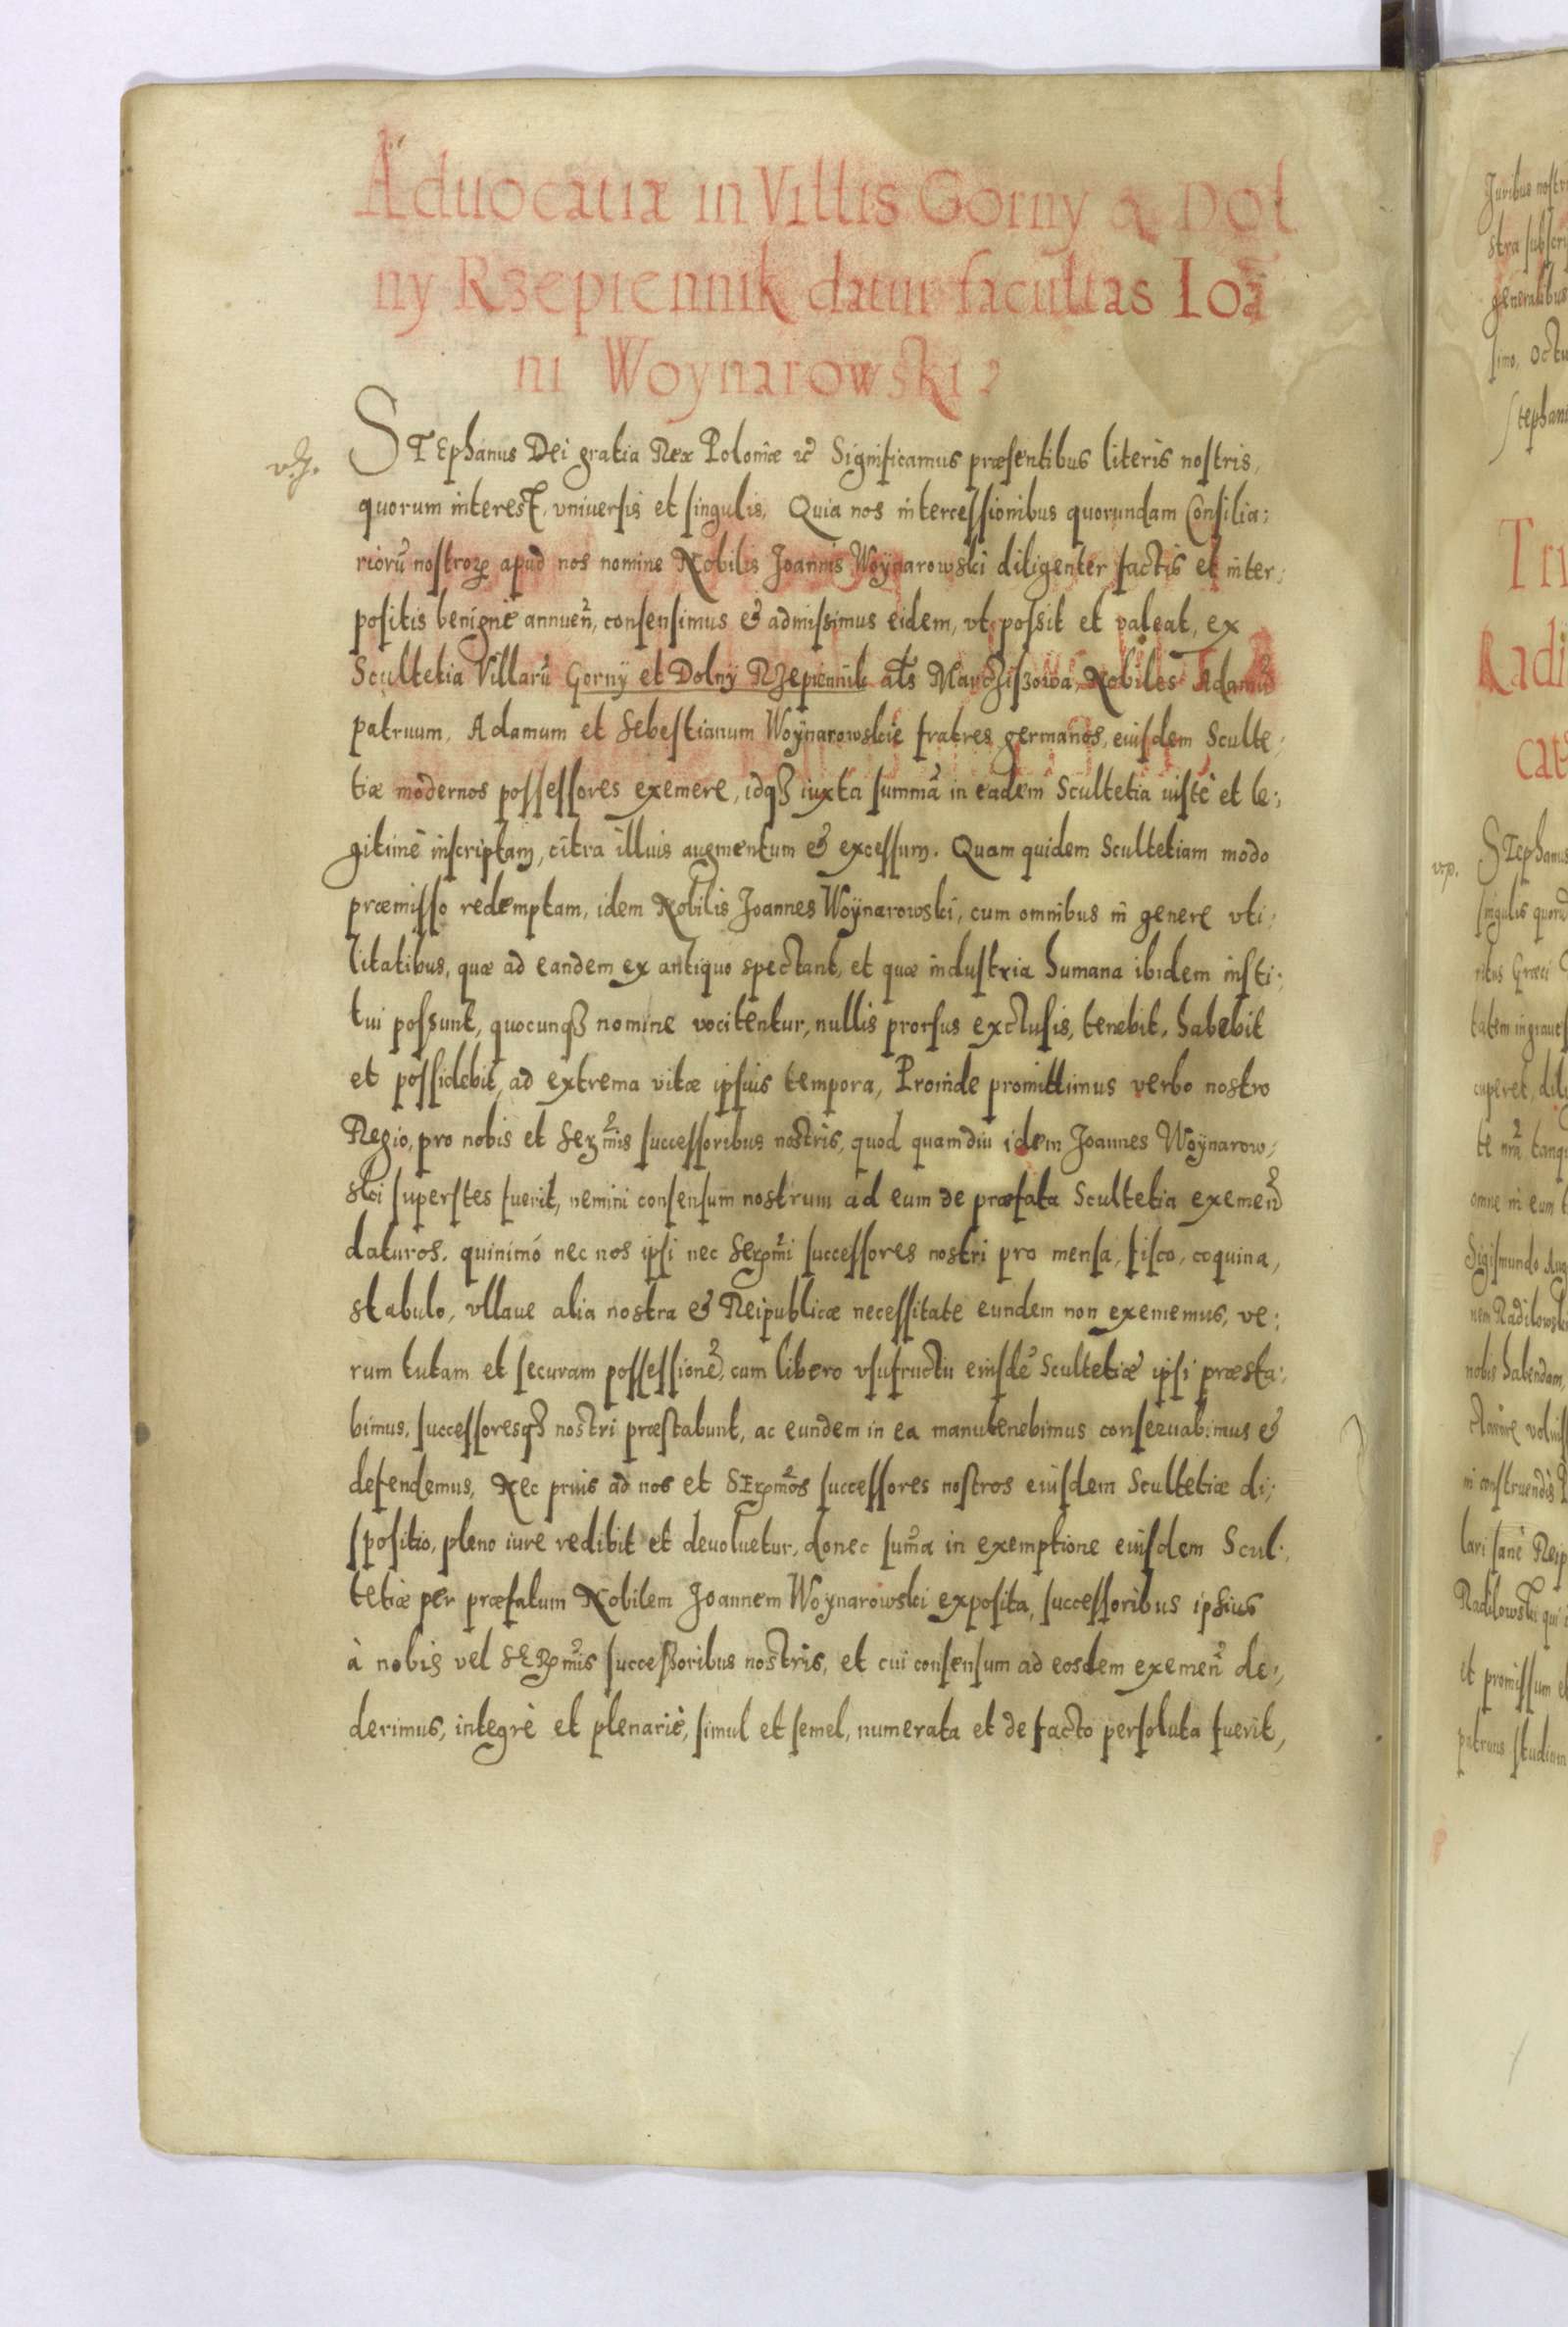 Aduocatiæ in Villis Gorny & Dol
ny Rzepiennik datur facultas Ioã
ni Woynarowski
STEphanus Dei gratia Rex Poloniæ &c Significamus præsentibus literis nostris,
quorum interest, vniuersis et singulis, Quia nos intercessionibus quorundam Consilia:
riorũ nostroꝝ apud nos nomine Nobilis Joannis Woÿnarowski diligenter factis et inter:
positis benignè annueñ, consensimus & admissimus eidem, vt possit et valeat, ex
Scultetia Villarũ Gornÿ et Dolnÿ Rzepiennik al̃s Marcziszowa, Nobiles Adamũ
patruum, Adamum et Sebestianum Woÿnarowskie fratres germanos, eiusdem Sculte:
tiæ modernos possessores exemere, idqꝫ iuxta summã in eadem Scultetia iustè et le:
gitimè inscriptam, citra illius augmentum & excessum. Quam quidem Scultetiam modo
præmisso redemptam, idem Nobilis Joannes Woÿnarowski, cum omnibus in genere vti:
litatibus, quæ ad eandem ex antiquo spectant, et quæ industria humana ibidem insti:
tui possunt, quocunqꝫ nomine vocitentur, nullis prorsus exclusis, tenebit, habebit
et possidebit, ad extrema vitæ ipsius tempora, Proinde promittimus verbo nostro
Regio, pro nobis et Serm̃is successoribus nostris, quod quamdiu idem Joannes Woÿnarow:
ski superstes fuerit, nemini consensum nostrum ad eum de præfata Scultetia exemeñd
daturos, quinimó nec nos ipsi nec Serm̃i successores nostri pro mensa, fisco, coquina,
stabulo, vllaue alia nostra & Reipublicæ necessitate eundem non exememus, ve:
rum tutam et securam possessionẽ, cum libero vsufructu eiusdẽ Scultetiæ ipsi præsta:
bimus, successoresqꝫ nostri præstabunt, ac eundem in ea manutenebimus conseruabimus &
defendemus, Nec prius ad nos et SErm̃os successores nostros eiusdem Scultetiæ di:
spositio, pleno iure redibit et deuoluetur, donec sum̃a in exemptione eiusdem Scul:
tetiæ per præfatum Nobilem Joannem Woynarowski exposita, successoribus ipsius
à nobis vel SERm̃is successoribus nostris, et cui consensum ad eosdem exemeñ de:
derimus, integrè et plenariè, simul et semel, numerata et de facto persoluta fuerit,